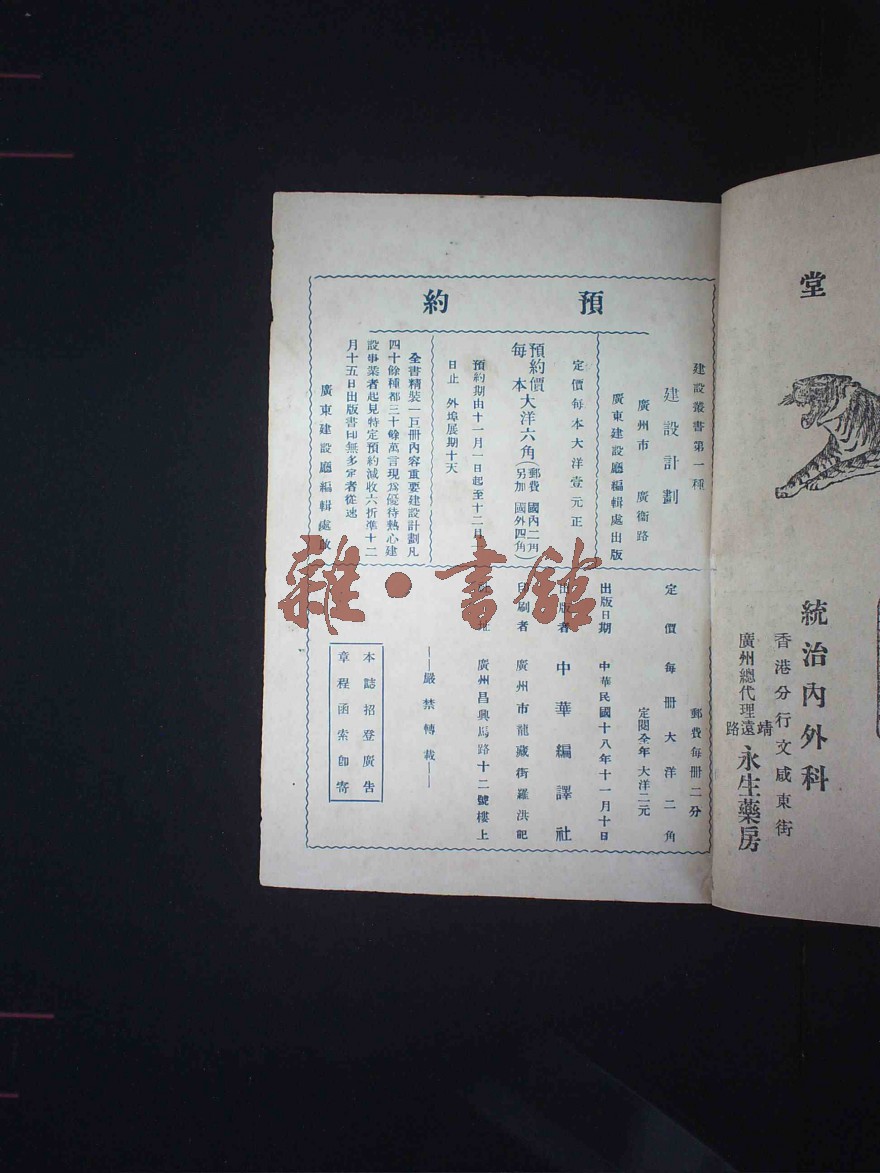 預約
建設叢書第一種
建設計劃
廣州市 廣衞路
廣東建設廳編輯處出版
定價每本大洋壹元正
預約價
每本大洋六角(郵費 國內二角 另加 國外四角)
預約期由十一月一日起至十二月
日止 外埠展期十天
全書精裝一巨冊內容重要建設計劃凡
四十餘種都三十餘萬言現爲優待熱心建
設事業者起見特定預約減收六折準十二
月十五日出版書印無多定者從速
廣東建設廳編輯處啟
郵費每冊二分
定價每冊大洋二角
定閱全年大洋二元
出版日期 中華民國十八年十一月十日
出版者 中華編譯社
印刷者 廣州市龍藏街羅洪記
址 廣州昌興馬路十二號樓上
——嚴禁轉載——
本誌招登廣告
章程函索卽寄
雜·書館
堂
統治內外科
香港分行文咸東街
廣州總代理靖遠路永生藥房